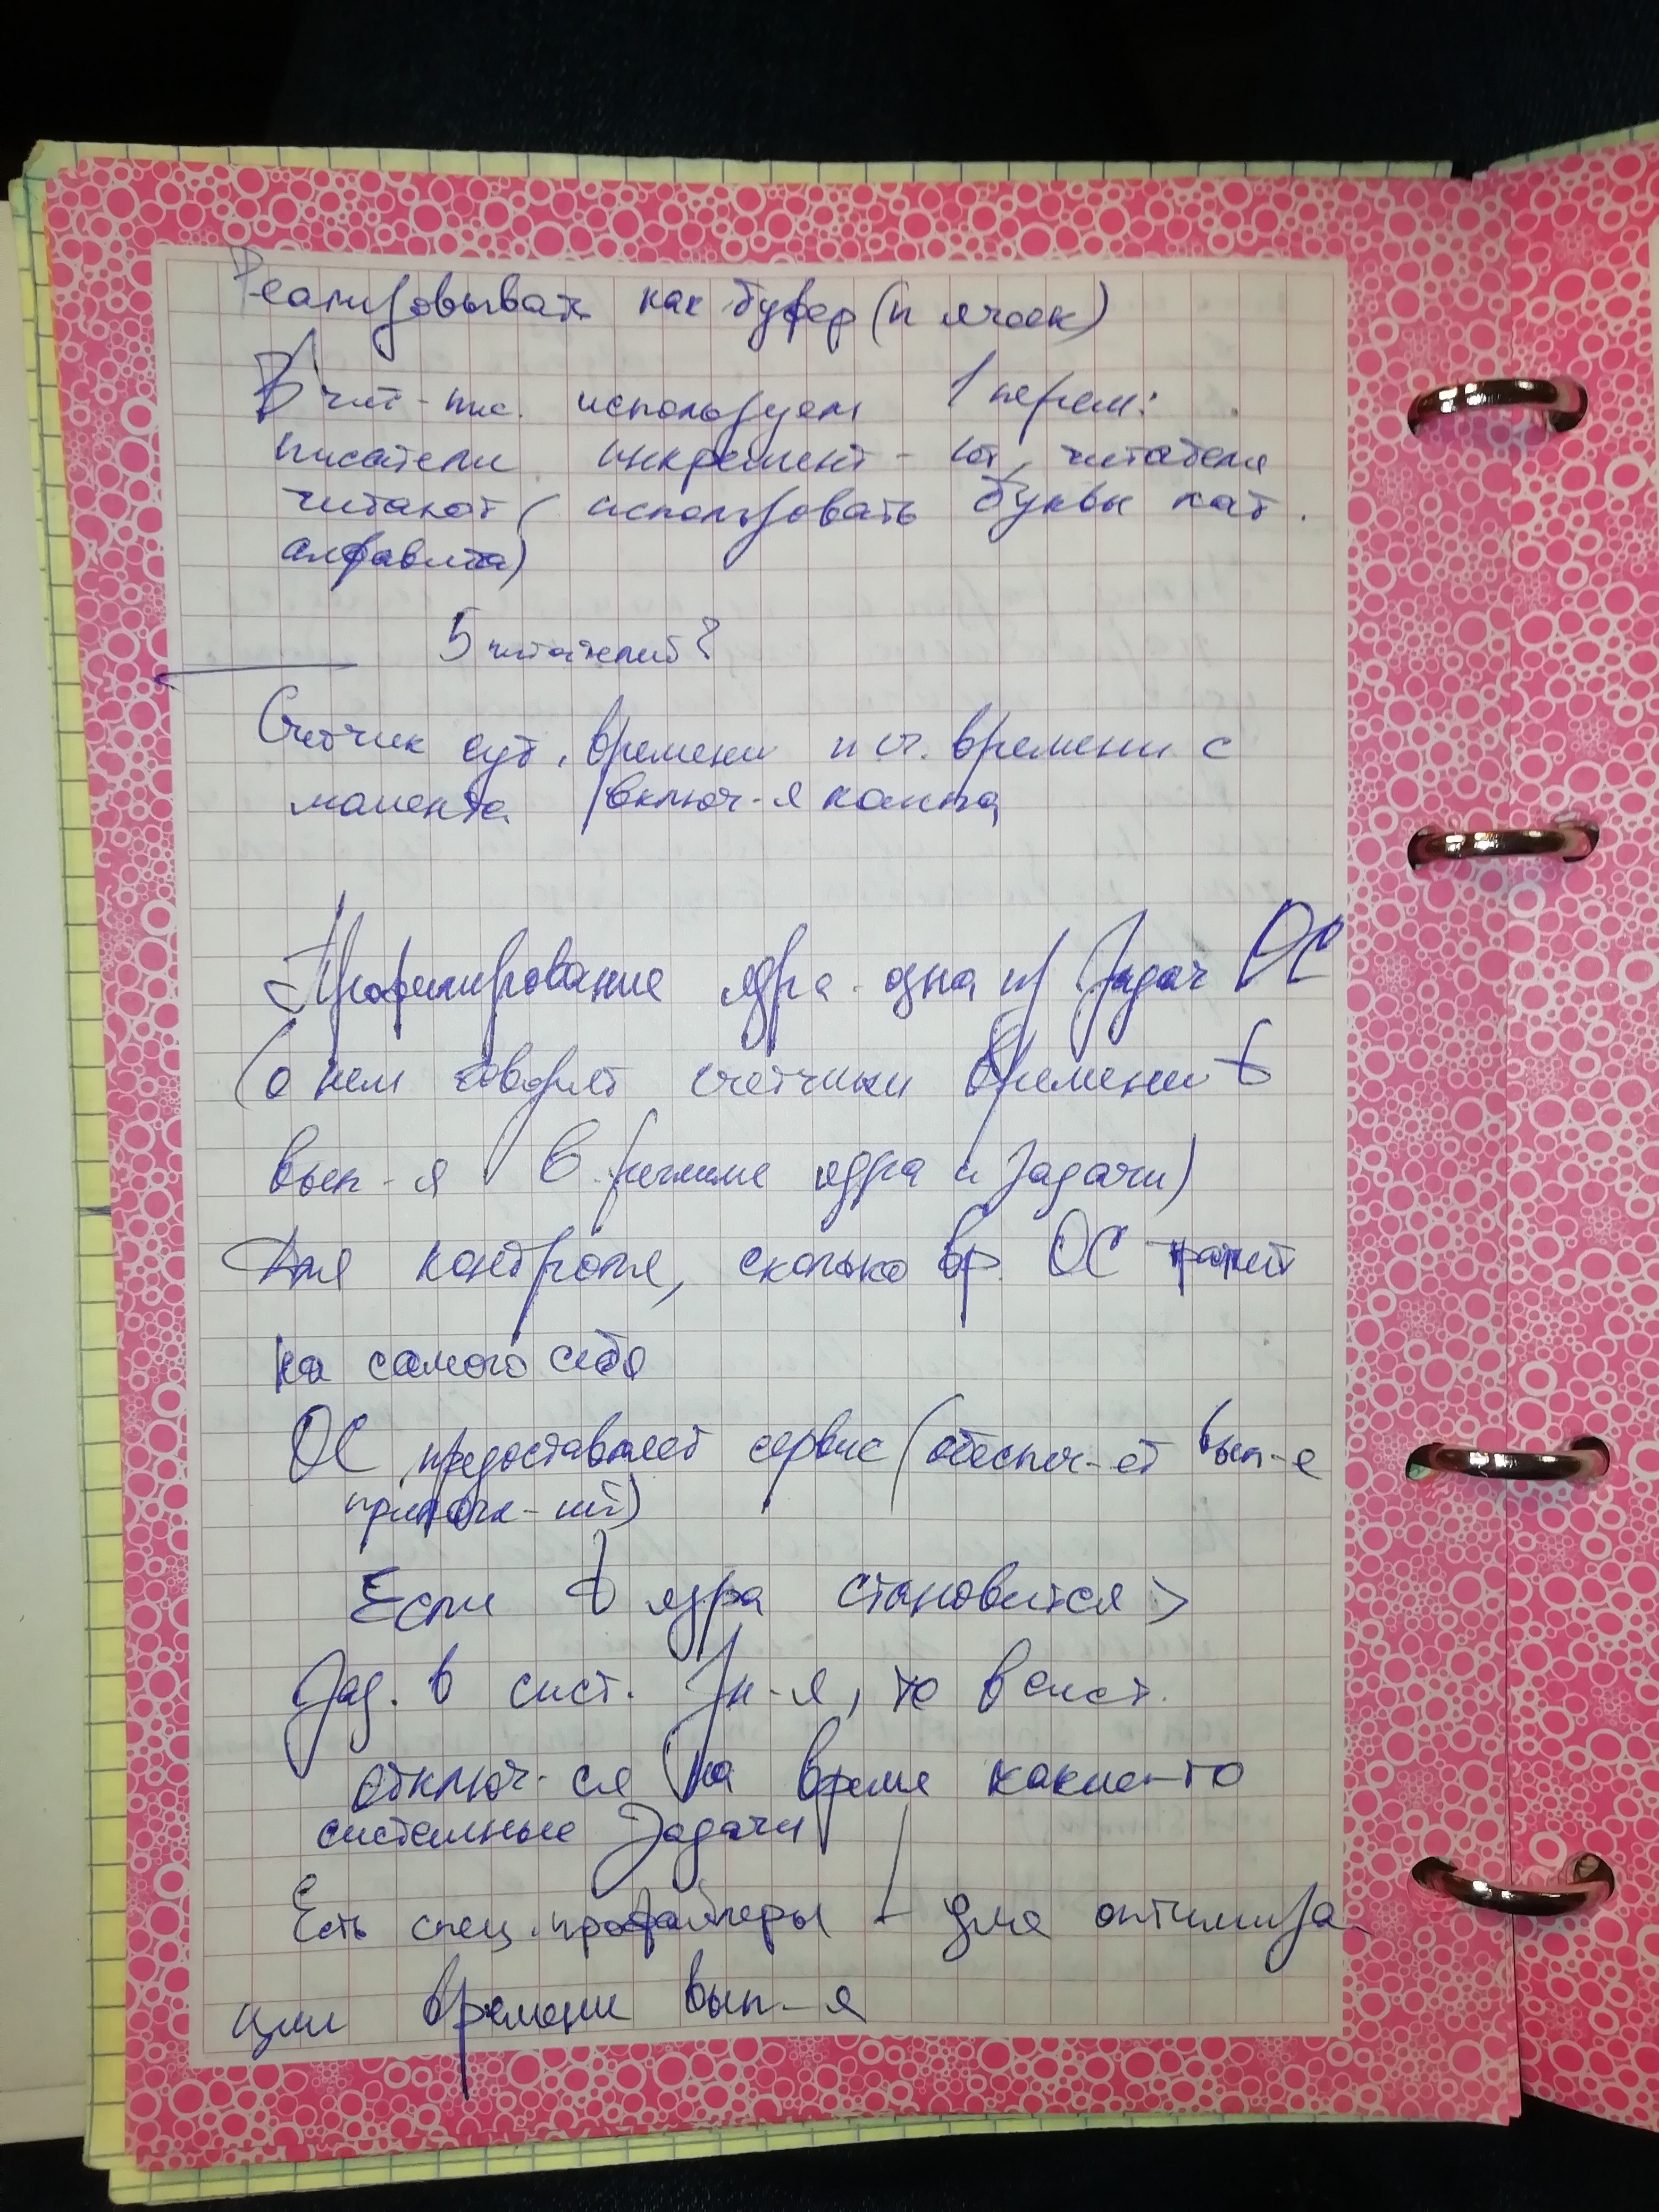 Реализовывать как буфер (n ячеек)
В чит-пис. используем 1 перем:
писатели инкремент-ют, читатели
читают (использовать буквы лат.
алфавита)
5 читателей?
Счетчик сут. времени и сч. времени с
момента включ-я компа
Профилирование ядра - одна из задач ОС
(о нем говорят счетчики времени t
вып-я в режиме ядра и задачи)
Для контроля, сколько вр. ОС тратит
на самого себя
ОС предоставляет сервис (обеспеч-ет вып-е
прилож-ий)
Если t ядра становится >
зад. в сист. зн-я, то в сист.
отключ-ся на время какие-то
системные задачи
Есть спец. профайлеры – для оптимиза-
ции времени вып-я